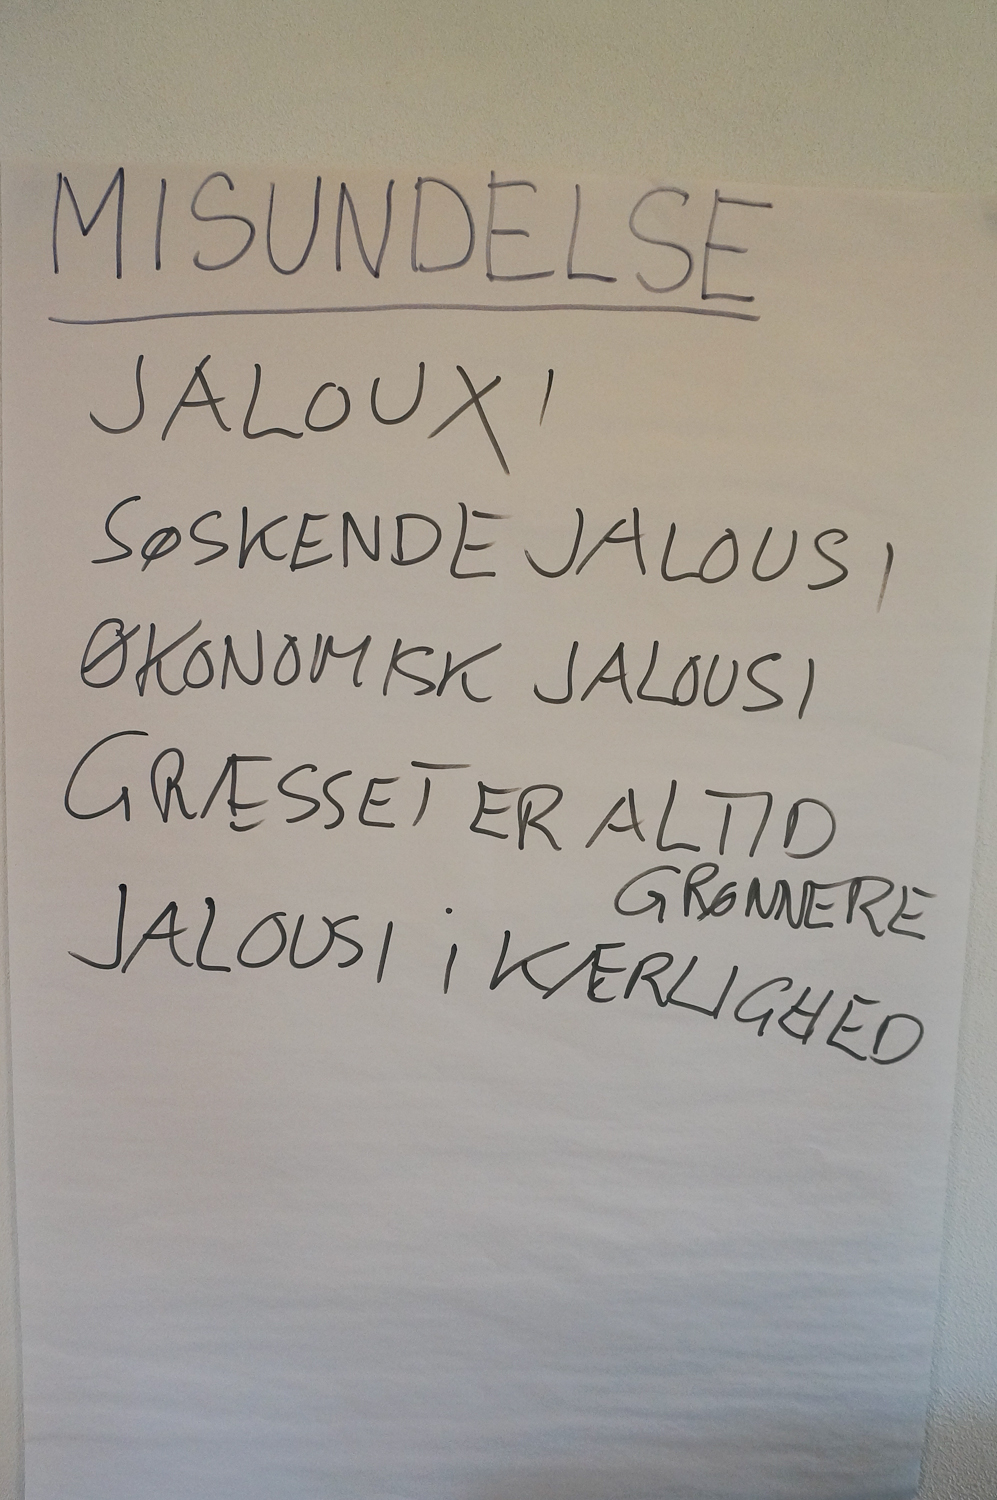 MISUNDELSE
JALOUX I
SØSKENDE JALOUSI
ØKONOMISK JALOUSI
GRÆSSET ER ALTID
GRØNNERE
JALOUSI i KÆRLIGHED